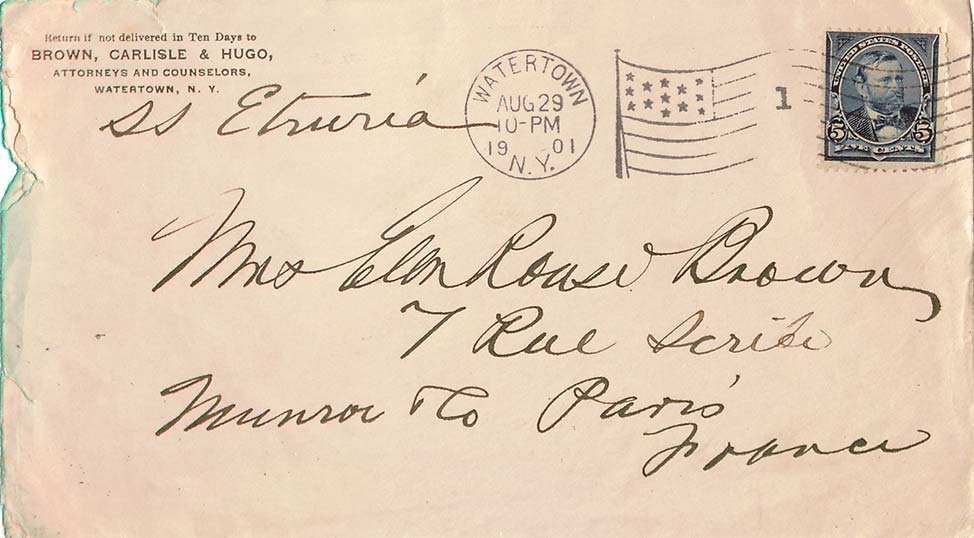 Return if not delivered in Ten Days to
BROWN, CARLISLE & HUGO,
ATTORNEYS AND COUNSELORS,
WATERTOWN, N. Y.
SS Etruria
WATERTOWN
AUG 29
10-PM
19 01
N.Y.
1
UNITED STATES POSTAGE
5 5
FIVE CENTS
Mrs Ella Rouse Brown
7 Rue Scribe
Munroe & Co Paris
France